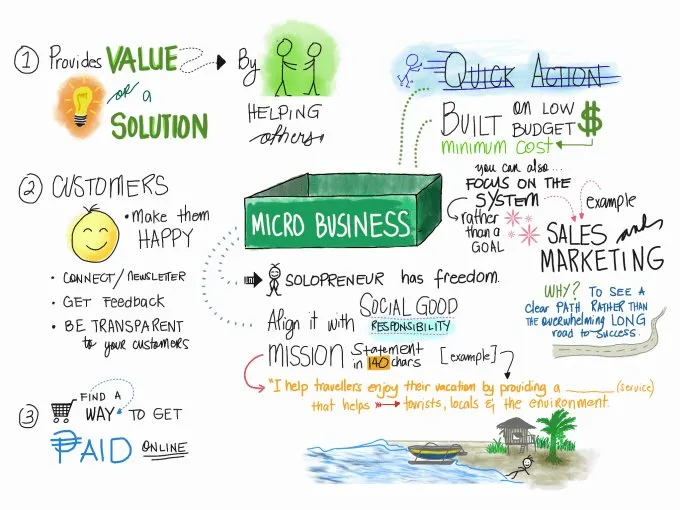 1 Provides VALUE
or a
SOLUTION
By
HELPING
others
QUICK ACTION
BUILT ON LOW
BUDGET $
minimum cost
you can also...
FOCUS ON THE
SYSTEM
rather
than a
GOAL
example
SALES and
MARKETING
WHY? TO SEE A
clear PATH, RATHER THAN
THE OVERWHELMING LONG
road to success.
2 CUSTOMERS
• Make them
HAPPY
• CONNECT/NEWSLETTER
• GET FeedBACK
• BE TRANSPARENT
to your customers
MICRO BUSINESS
SOLOPRENEUR has freedom.
Align it with SOCIAL GOOD
RESPONSIBILITY
MISSION Statement
in 140 chars
[example]
"I help travellers enjoy their vacation by providing a ______ (service)
that helps tourists, locals & the environment.
3 FIND A
WAY TO GET
PAID ONLINE